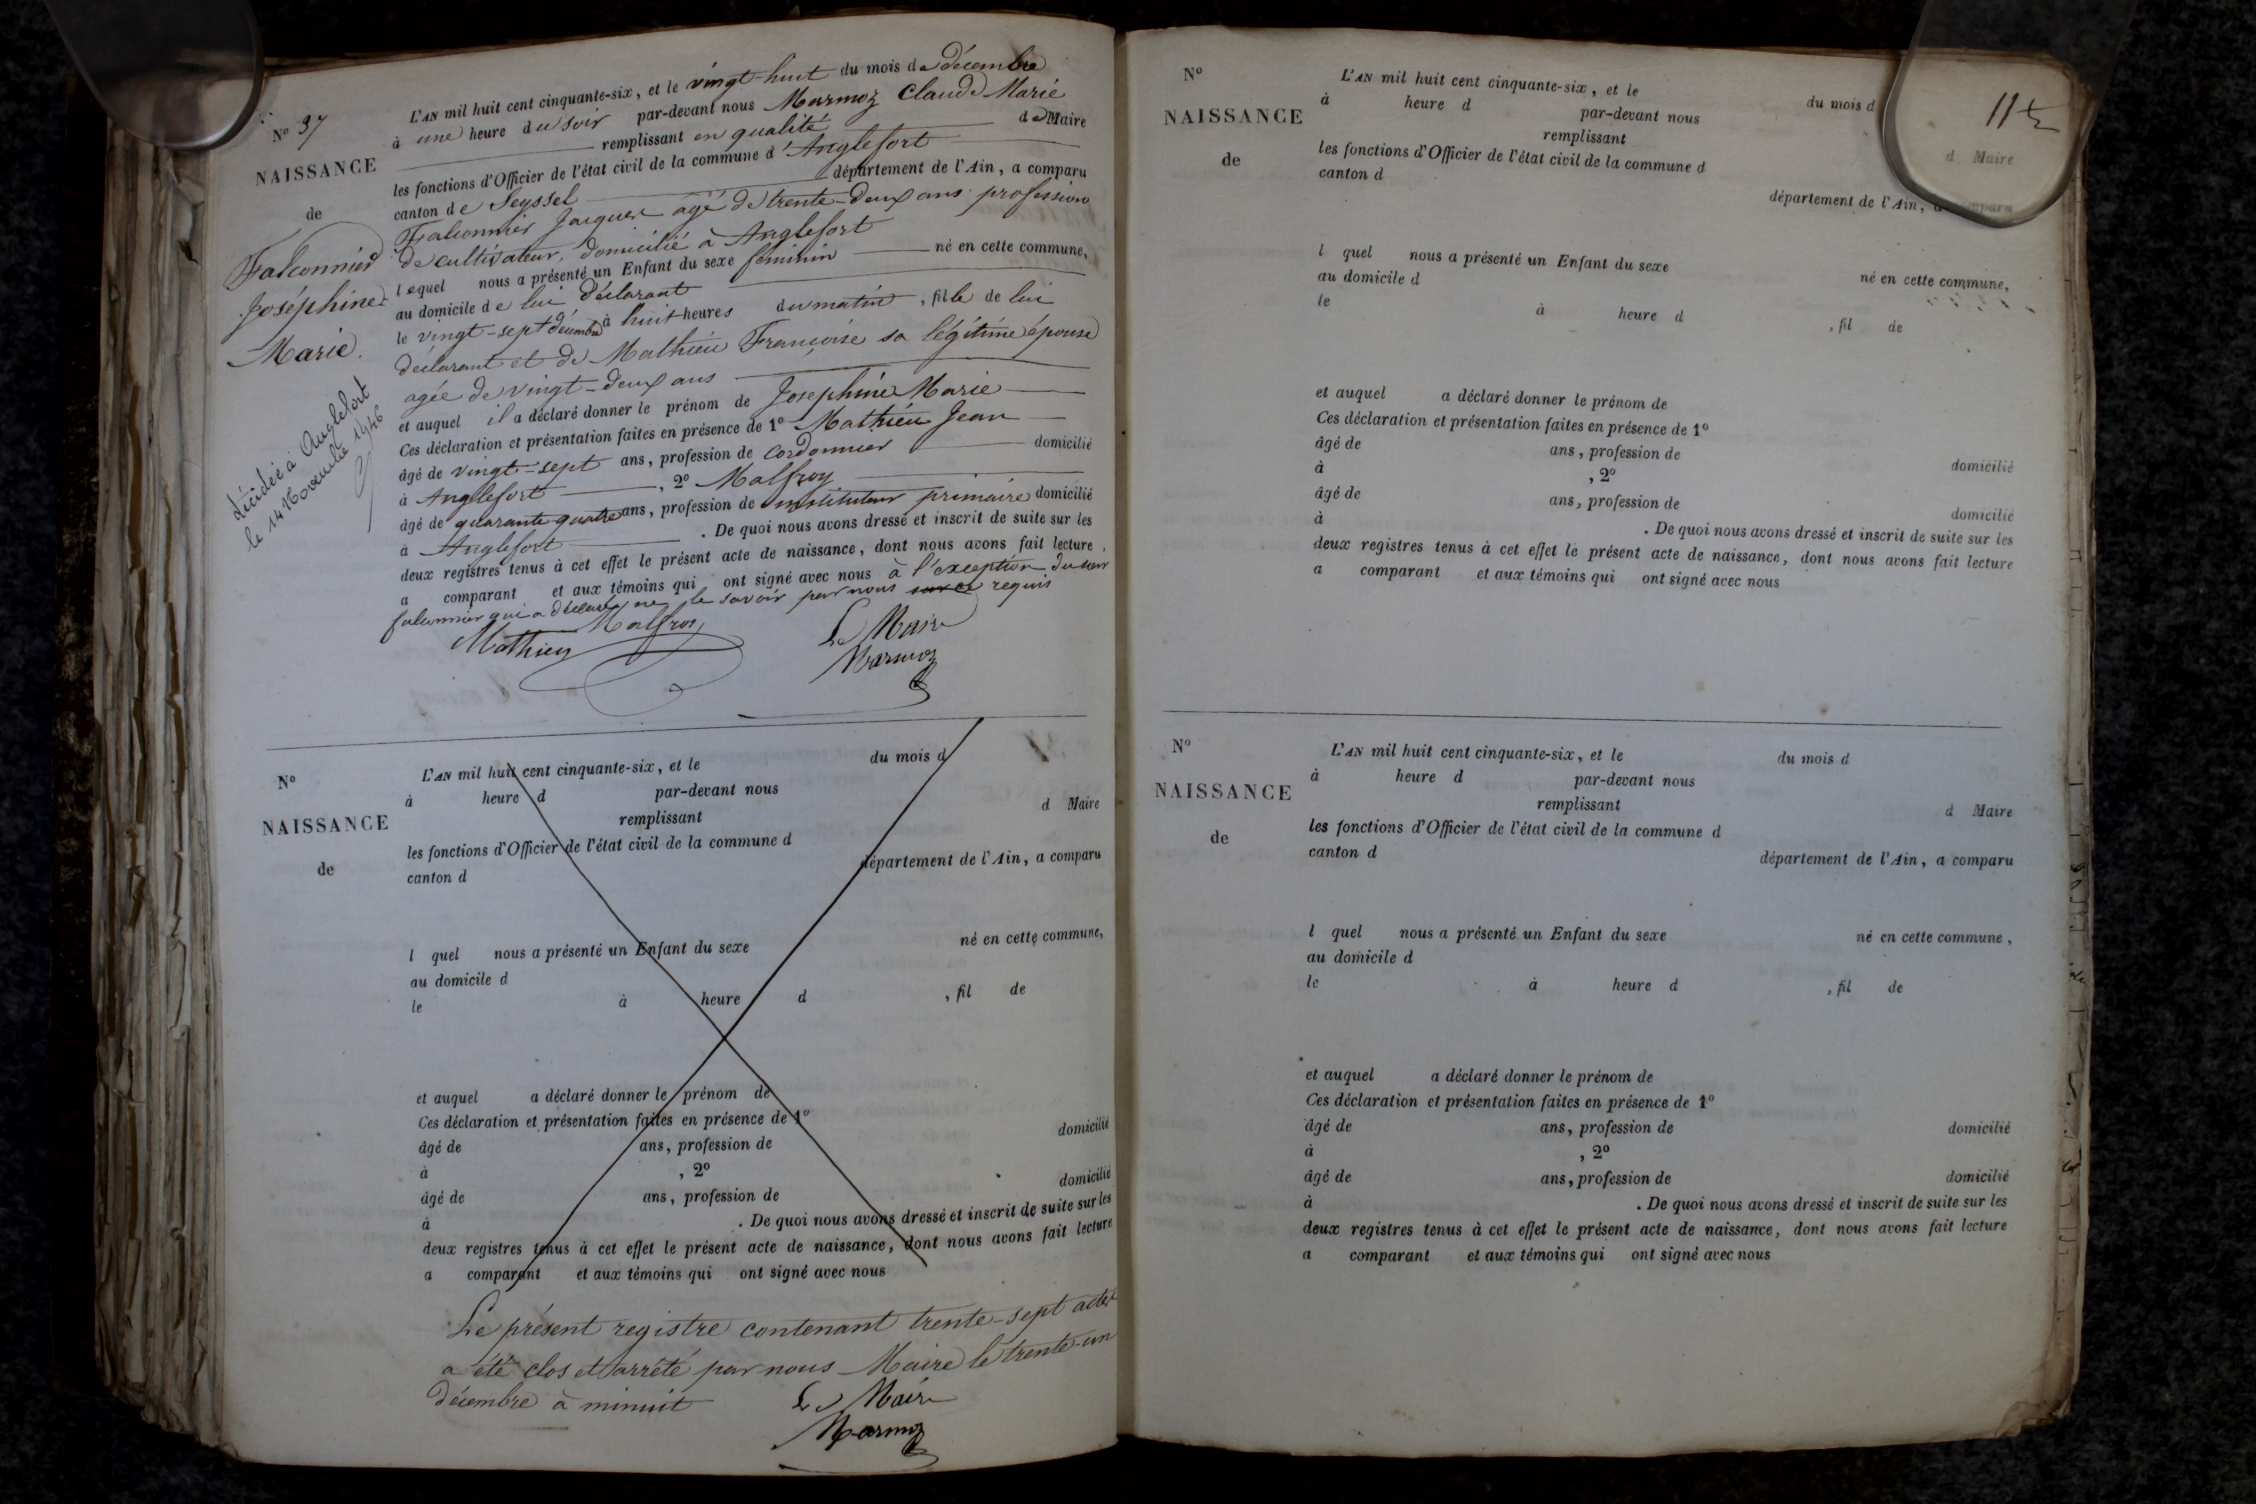 N° 37
NAISSANCE
de
Falconnier
Joséphine
Marie.
décédée à Anglefort
le 14 Novembre 1946
L'AN mil huit cent cinquante-six, et le vingt-huit du mois de décembre
à une heure du soir par-devant nous Marmoz Claude Marie
remplissant en qualité de Maire
les fonctions d'Officier de l'état civil de la commune d'Anglefort
canton de Seyssel département de l'Ain, a comparu
Falconnier Jacques agé de trente-deux ans profession
de cultivateur, domicilié à Anglefort
lequel nous a présenté un Enfant du sexe féminin né en cette commune,
au domicile de lui déclarant
le vingt-sept décembre à huit heures du matin, fille de lui
déclarant et de Mathieu Françoise sa légitime épouse
agée de vingt-deux ans
et auquel il a déclaré donner le prénom de Joséphine Marie
Ces déclaration et présentation faites en présence de 1° Mathieu Jean
âgé de vingt-sept ans, profession de cordonnier domicilié
à Anglefort, 2° Malfroy
âgé de quarante quatre ans, profession de instituteur primaire domicilié
à Anglefort. De quoi nous avons dressé et inscrit de suite sur les
deux registres tenus à cet effet le présent acte de naissance, dont nous avons fait lecture
a comparant et aux témoins qui ont signé avec nous à l'exception du sieur
falconnier qui a déclaré ne le savoir par nous requis
Mathieu Malfroy Le Maire
Marmoz
N°
NAISSANCE
de
L'AN mil huit cent cinquante-six, et le du mois d
à heure d par-devant nous
remplissant d Maire
les fonctions d'Officier de l'état civil de la commune d
canton d département de l'Ain, a comparu
l quel nous a présenté un Enfant du sexe né en cette commune,
au domicile d
le à heure d , fil de
et auquel a déclaré donner le prénom de
Ces déclaration et présentation faites en présence de 1°
âgé de ans, profession de domicilié
à , 2°
âgé de ans, profession de domicilié
à . De quoi nous avons dressé et inscrit de suite sur les
deux registres tenus à cet effet le présent acte de naissance, dont nous avons fait lecture
a comparant et aux témoins qui ont signé avec nous
Le présent registre contenant trente-sept actes
a été clos et arrêté par nous Maire le trente-un
décembre à minuit
Le Maire
Marmoz
N°
NAISSANCE
de
L'AN mil huit cent cinquante-six, et le du mois d
à heure d par-devant nous
remplissant d Maire
les fonctions d'Officier de l'état civil de la commune d
canton d département de l'Ain, a comparu
l quel nous a présenté un Enfant du sexe né en cette commune,
au domicile d
le à heure d , fil de
et auquel a déclaré donner le prénom de
Ces déclaration et présentation faites en présence de 1°
âgé de ans, profession de domicilié
à , 2°
âgé de ans, profession de domicilié
à . De quoi nous avons dressé et inscrit de suite sur les
deux registres tenus à cet effet le présent acte de naissance, dont nous avons fait lecture
a comparant et aux témoins qui ont signé avec nous
N°
NAISSANCE
de
L'AN mil huit cent cinquante-six, et le du mois d
à heure d par-devant nous
remplissant d Maire
les fonctions d'Officier de l'état civil de la commune d
canton d département de l'Ain, a comparu
l quel nous a présenté un Enfant du sexe né en cette commune,
au domicile d
le à heure d , fil de
et auquel a déclaré donner le prénom de
Ces déclaration et présentation faites en présence de 1°
âgé de ans, profession de domicilié
à , 2°
âgé de ans, profession de domicilié
à . De quoi nous avons dressé et inscrit de suite sur les
deux registres tenus à cet effet le présent acte de naissance, dont nous avons fait lecture
a comparant et aux témoins qui ont signé avec nous